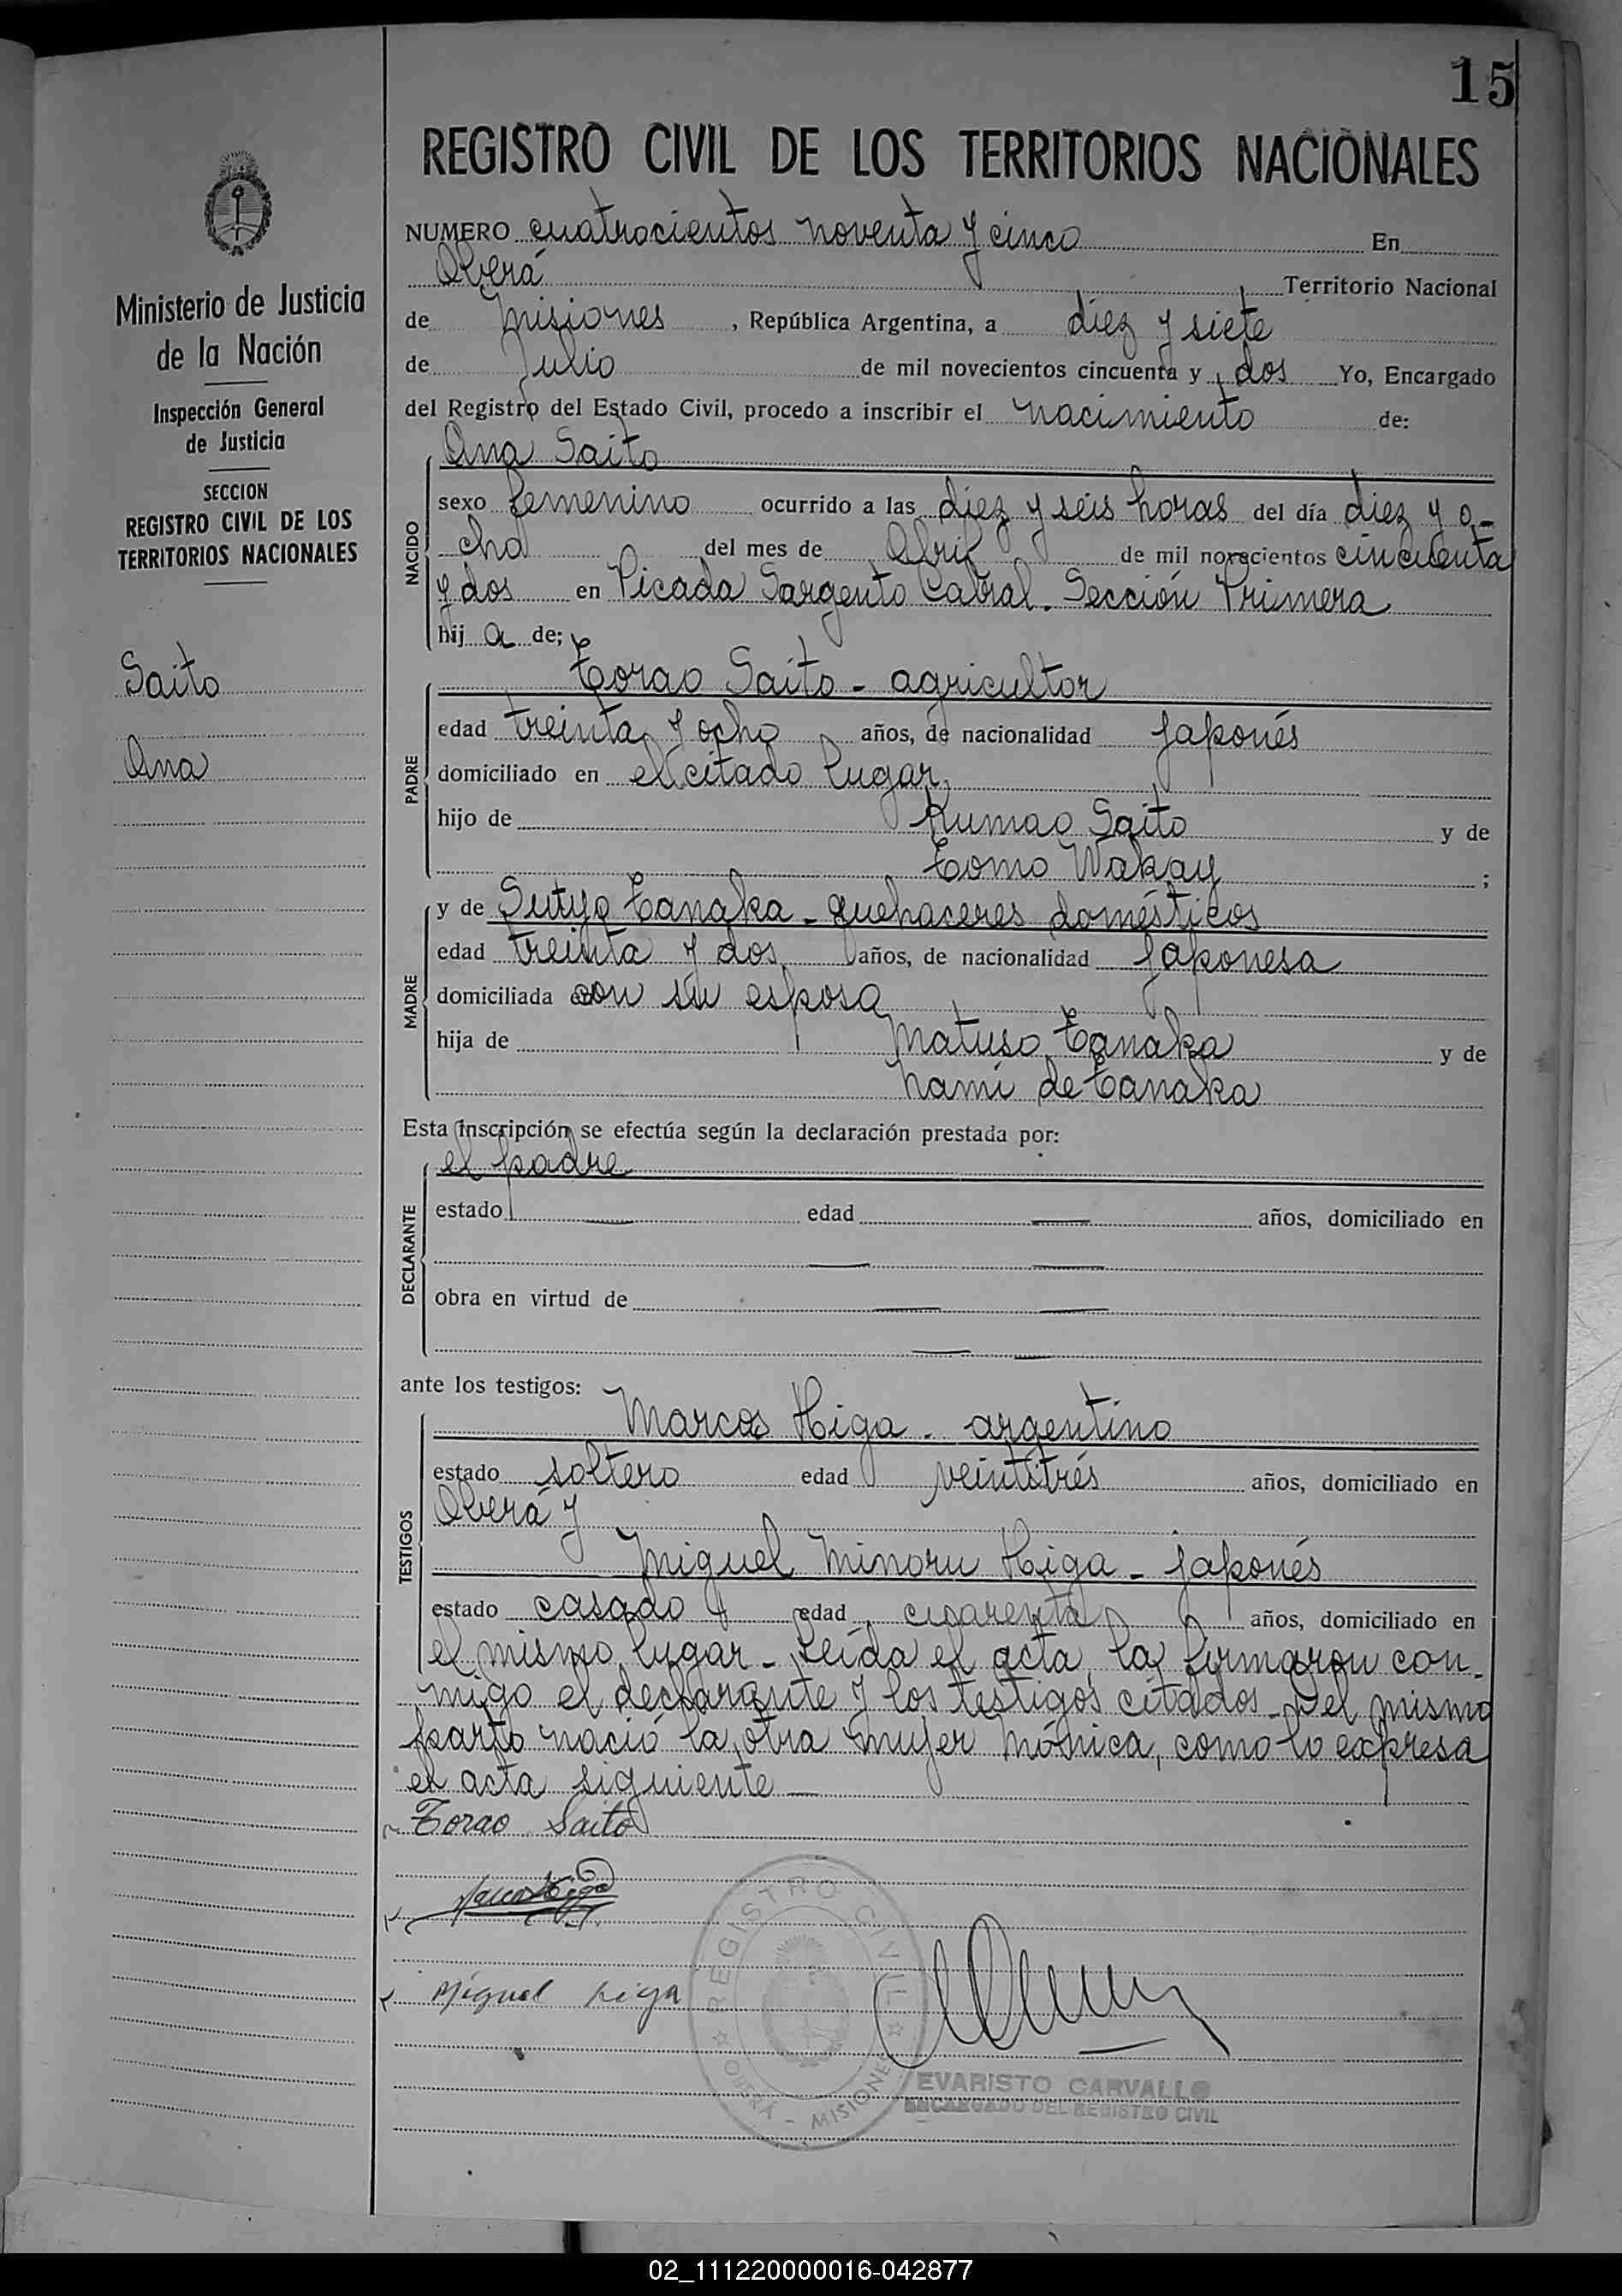 15
REGISTRO CIVIL DE LOS TERRITORIOS NACIONALES
Ministerio de Justicia
de la Nación
Inspección General
de Justicia
SECCION
REGISTRO CIVIL DE LOS
TERRITORIOS NACIONALES
Saito
Ana
NUMERO cuatrocientos noventa y cinco En
Oberá Territorio Nacional
de Misiones, República Argentina, a diez y siete
de Julio de mil novecientos cincuenta y dos Yo, Encargado
del Registro del Estado Civil, procedo a inscribir el nacimiento de:
Ana Saito
NACIDO
sexo femenino ocurrido a las diez y séis horas del día diez y o-
cho del mes de Abril de mil novecientos cincuenta
y dos en Picada Sargento Cabral. Sección Primera
hij a de;
Torao Saito - agricultor
PADRE
edad treinta y ocho años, de nacionalidad japonés
domiciliado en el citado lugar
hijo de Kumao Saito y de
Tomo Wakay ;
MADRE
y de Sutyo Tanaka - quehaceres domésticos
edad treinta y dos años, de nacionalidad japonesa
domiciliada con su esposo
hija de Matuso Tanaka y de
Nami de Tanaka
Esta inscripción se efectúa según la declaración prestada por:
el padre
DECLARANTE
estado — edad — años, domiciliado en
— —
obra en virtud de — —
— —
ante los testigos:
Marcos Higa - argentino
TESTIGOS
estado soltero edad veintitrés años, domiciliado en
Oberá y
Miguel Minoru Higa - japonés
estado casado edad cuarenta años, domiciliado en
el mismo lugar - Leída el acta, la firmaron con-
migo el declarante y los testigos citados - Del mismo
parto nació la otra mujer Mónica, como lo expresa
el acta siguiente —
Torao Saito
Marcos Higa
Miguel Higa
REGISTRO CIVIL
OBERÁ - MISIONES
EVARISTO CARVALLO
ENCARGADO DEL REGISTRO CIVIL
02_111220000016-042877